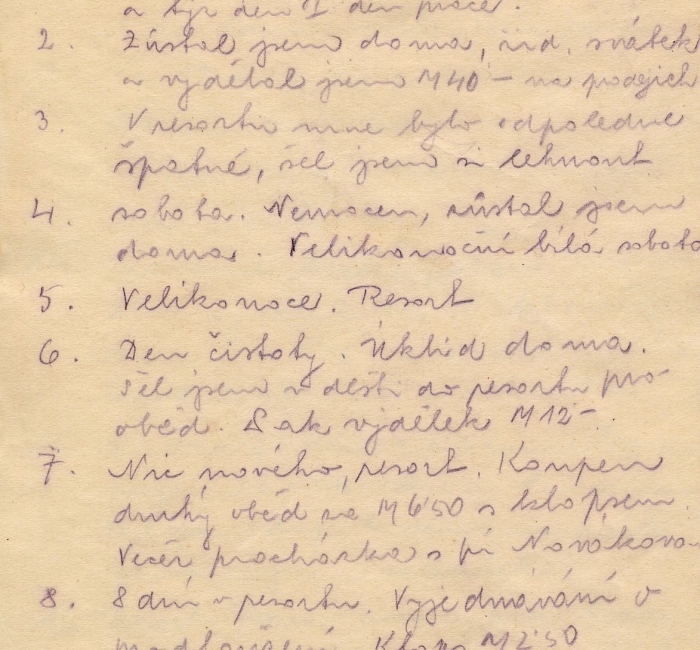 a týž den I den práce.
2. Zůstal jsem doma, žid. svátek
a vydělal jsem M 40 – na
3. V resortu mne bylo odpoledne
špatně, šel jsem si lehnout
4. sobota. Nemocen, zůstal jsem
doma. Velikonoční bílá sobota
5. Velikonoce. Resort
6. Den čistoty. Úklid doma.
Šel jsem v dešti do resortu pro
oběd. výdělek M 12 –.
7. Nic nového, resort. Koupen
druhý oběd za M 6'50 s klopsem.
Večer procházka s pí Novákovo
8. 8 dní v resortu. Vyjednávání o
M 2'50